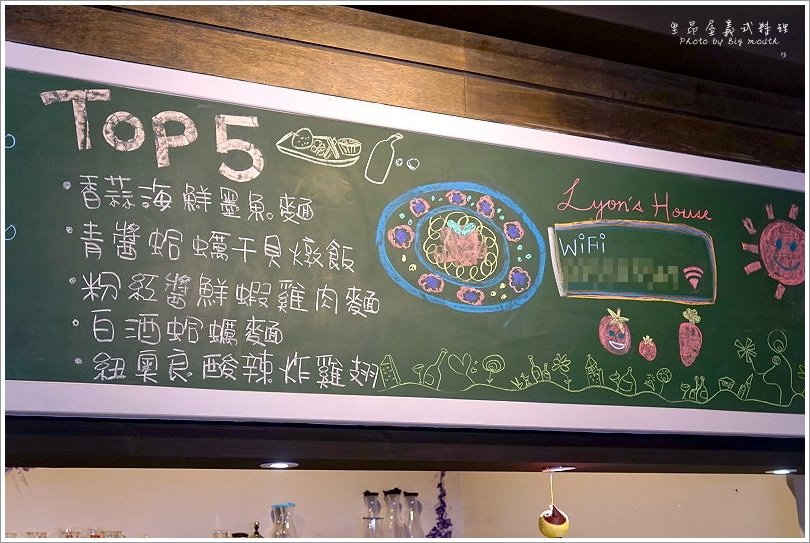 里昂屋義式料理
Photo by Big mouth
TOP 5
·香蒜海鮮墨魚麵
·青醬蛤蠣干貝燉飯
·粉紅醬鮮蝦雞肉麵
·白酒蛤蠣麵
·紐奧良酸辣炸雞翅
Lyon's House
WiFi